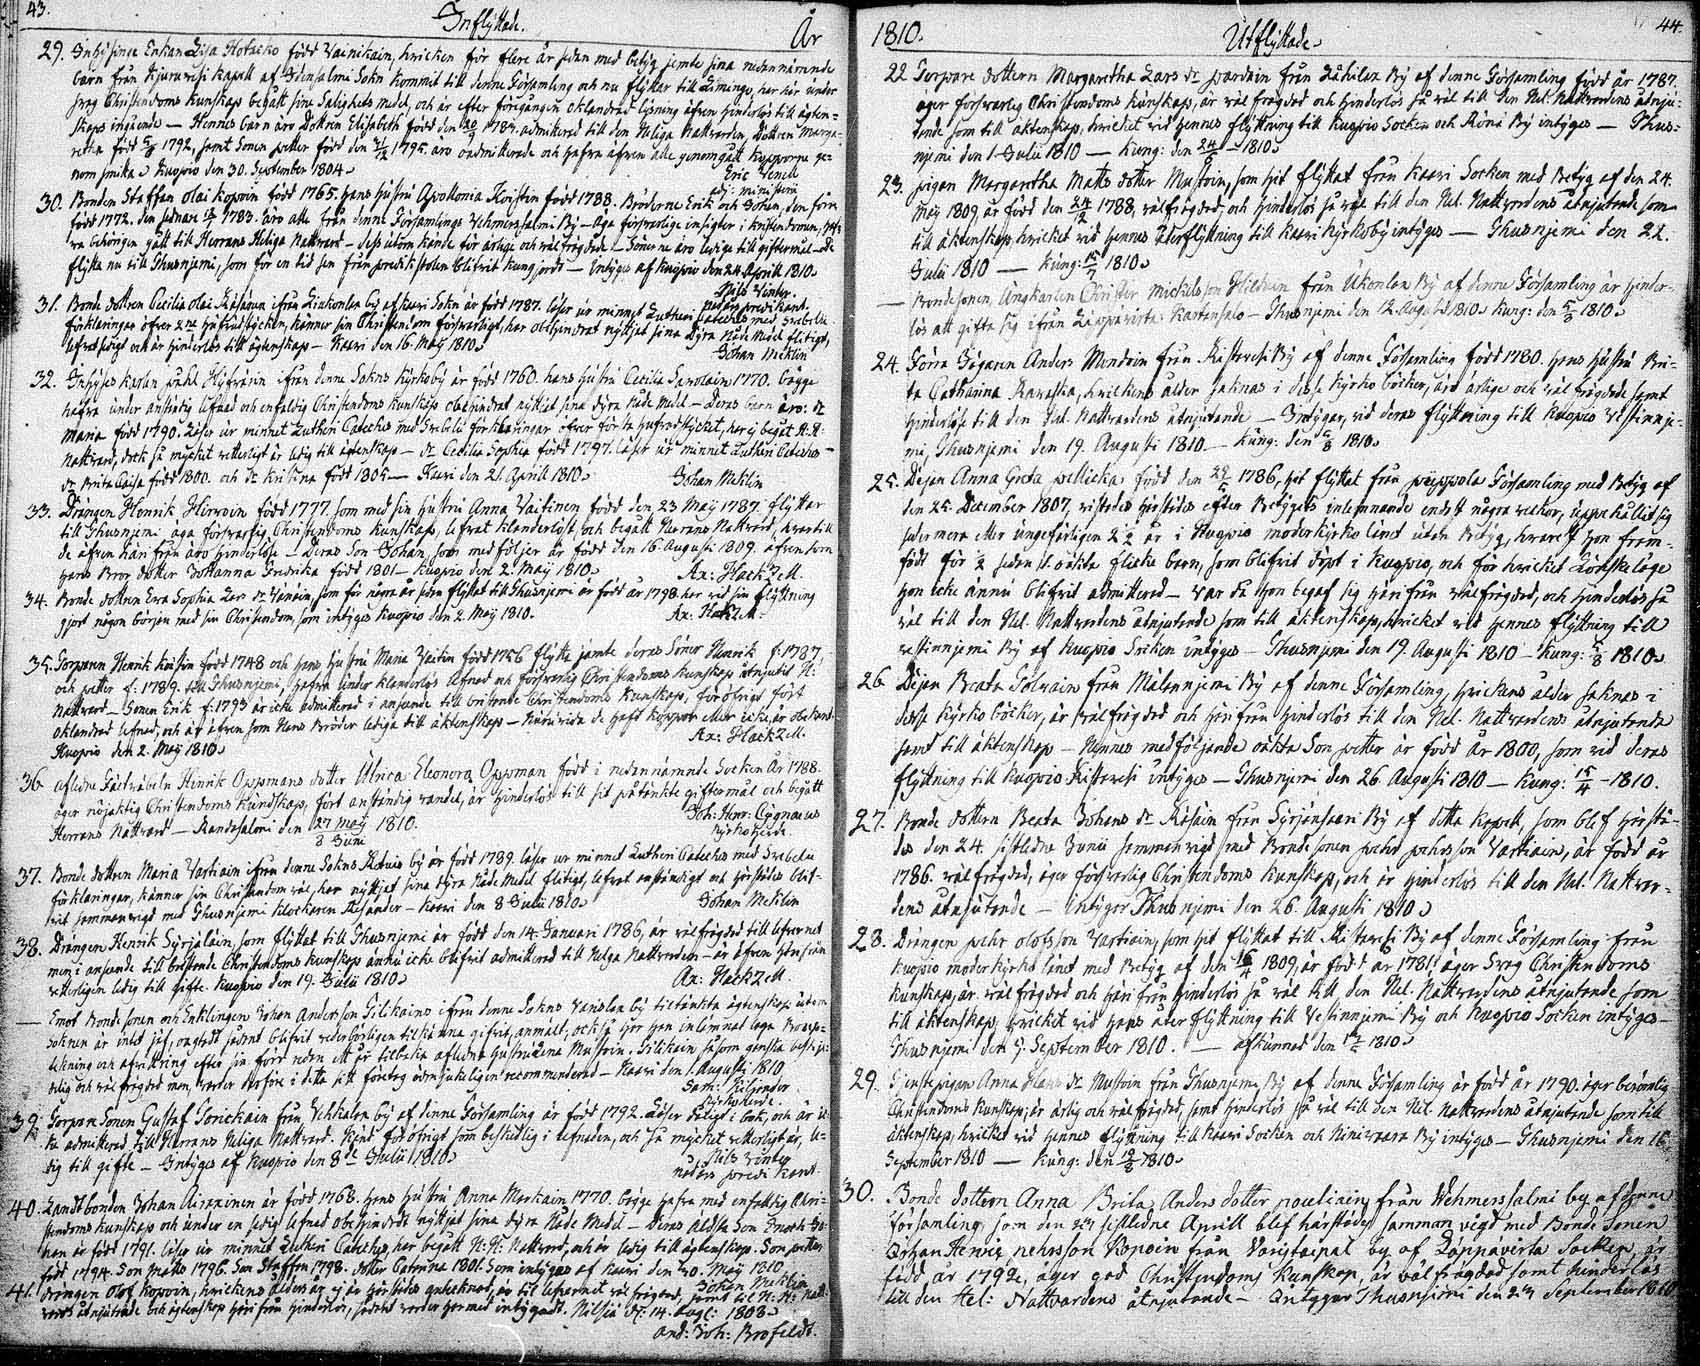 43.
Inflyttade.
År
29. Inhysinge Enkan Lisa Hotacko född Vainikain, hvilken för flere år sedan med betyg jemte sina nedannämnde
barn från Kjuruvesi Kapell af Idensalmi Sokn kommit till denne Församling och nu flyttar till Limingo, har här under
svag Christendoms kunskap begått sine Salighets medel, och är efter föregången oklandrad lysning äfven hinderlös till ägten-
skaps ingående — Hennes barn äro Dottren Elisabeth född den 1787. admitterad till den Heliga Nattvarden, Dottren Marga-
retha född 1792, samt Sonen petter född den 1795. äro oadmitterade och hafva äfven alle genomgått Kopporne ge-
nom smitta Kuopio den 30. September 1804.
Eric Wenell
adj: ministerii
30. Bonden Staffan olai Kopoin född 1765. hans hustru Apollonia Hoistin född 1788. Bröderne Erik och Johan, den förre
född 1772. den sednare 1783. äro alle från denne Församlings Vehmersalmi By — Äga försvarlige insigter i kristendomen,
behörigen gått till Herrans Heliga Nattvard — dess utom kände för ärlige och välfrägdade — Sönerne äro ledige till giftermål — De
flytta nu till Thusnjemi, som för en tid sen från predikstolen blifvit kungjordt — Intygas af Kuopio den 24. Aprill 1810.
Nils Winter.
31. Bonde dottren Cecilia olai Räsänen ifrån Linkonlax by af Kaavi Sokn är född 1787. läser ur minnet Lutheri Cateches med Svebelii
förklaringar öfver 2ne hufvudstycken, känner sin Christendom försvarligt, har obehindrat nyttjat sina dyra Nåde Medel flitigt,
lefvat sedigt och är hinderlös till ägtenskap — Kaavi den 16. Maij 1810.
Johan Meklin
32. Inhyses karlen påhl Hyfvärin ifrån denne Sokns Kyrkoby är född 1760. hans hustru Cecilia Savolain 1770. bägge
hafva under anständig lefnad och enfaldig Christendoms kunskap obehindrat nyttjat sina dyra Nåde Medel — Deras barn äro: dr
Maria född 1790. läser ur minnet Lutheri Cateches med Svebelii förklaringar öfver första hufvudstycket, har ej begått H. H:
Nattvard, dock så mycket vetterligt är ledig till ägtenskap — dr Cecilia Sophia född 1797. läser ur minnet Lutheri Cateches —
dr Brita Caisa född 1800. och dr Kristina född 1805 — Kaavi den 21. Aprill 1810.
Johan Meklin
33. Drängen Henrik Hirvoin född 1777, som med sin hustru Anna Väisänen född den 23 Maij 1787. flyttar
till Thusnjemi, äga försvarlig Christendoms kunskap, lefvat klanderlöst, och begått Herrans Nattvard, hvartill
de äfven härifrån äro hinderlöse — Deras Son Johan, som medföljer är född den 16. Augusti 1809. äfvensom
hans Bror dotter Johanna Fredrika född 1801 — Kuopio den 2. Maij 1810.
Ax: Hackzell.
34. Bonde dottren Eva Sophia Lars dr Vänäin, som för några år sedan flyttat till Thusnjemi är född år 1798. har vid sin flyttning
gjort någon början med sin Christendom, som intyges Kuopio den 2. Maij 1810.
Ax: Hackzell.
35. Torparen Henrik Koistin född 1748 och hans hustru Maria Väitin född 1756 flytta jemte deras Söner Henrik f: 1787,
och petter f: 1789. till Thusnjemi, hafva under klanderlös lefnad och försvarlig Christendoms kunskap åtnjutit H:
Nattvard — Sonen Erik f: 1793 är icke admitterad i anseende till bristande Christendoms kunskap, för öfrigt fört
oklandrad lefnad, och är äfven som Hans Bröder ledige till äktenskap — Huruvida de haft koppor eller icke, är obekant
Kuopio den 2. Maij 1810.
Ax: Hackzell.
36. Aflidne Henrik Oppmans dotter Ulrica Eleonora Oppman född i nedannämnde Socken År 1788.
äger nöjaktig Christendoms Kundskap, fört anständig vandel, är hinderlös till sit påtänkte giftermål och begått
Herrans Nattvard — Randasalmi den 27 Maij 1810.
8 Juni
Joh: Henr: Cygnaeus
Kyrkoherde
37. Bonde dottren Maria Vartiain ifrån denne Sokns by är född 1789. läser ur minnet Lutheri Cateches med Svebelii
förklaringar, känner sin Christendom väl, har nyttjat sina dyra Nåde Medel flitigt, lefvat anständigt och härstädes blif-
vit sammanvigd med Thusnjemi klockaren — Kaavi den 8 Julii 1810.
Johan Meklin
38. Drängen Henrik Syrjäläin, som flyttat till Thusnjemi är född den 14. Januari 1786, är välfrägdad till lefvernet
men i anseende till bristande Christendoms kunskap ännu icke blifvit admitterad till Helga Nattvarden — är äfven härifrån
vetterligen ledig till gifte. Kuopio den 19. Julii 1810.
Ax: Hackzell.
— Emot Bonde sonen och Enklingen Johan Anderson Silikains ifrån denne Sokns by tiltänkta ägtenskap utom
soknen är intet jäf, oagtadt sådant blifvit vederbörligen tilkänna gifvit, anmält, också har han inlämnat laga Bouppte-
ckning och afvittring efter sin förr mera ett år tilbaka aflidna hustru Lena Mustoin. Silikain såsom ganska beskje-
delig och välfrägdad man, varder derföre i detta sitt företag ödmjukeligen recommenderad — Kaavi den 1. Augusti 1810
Sam: Kiljander
Kyrkoherde.
39. Torpare Sonen Gustaf Torickain från Vehkalax by af denne Församling är född 1792. Läser i bok, och är ic-
ke admitterad till Herrans Heliga Nattvard. Känd för öfrigt som beskedlig i lefnaden, och så mycket vetterligt är, le-
dig till gifte — Intyges af Kuopio den 8de Julii 1810.
Nils Winter
40. Landtbonden Johan Airaxinen är född 1768. hans hustru Anna Markain 1770. bägge hafva med enfaldig Chri-
stendoms kunskap och under en sedig lefnad obehindradt nyttjat sina dyra Nåde Medel — Deras äldsta Son
är född 1791. läser ur minnet Lutheri Cateches, har begått H: H: Nattvard, och är ledig till ägtenskap. Son petter
född 1794. Son Matts 1796. Son Staffan 1798. dotter Catrina 1801. Som intyges af Kaavi den 20. Maij 1810
Johan Meklin
41. drängen Olof Kopoin, hvilckens ålder är ej är härstädes anteknad, är til lefvernet väl frägdad, samt til H: H: Natt-
vards åtnjutande och ägtenskap härifrån hinderlös, sådant varder hermed intygadt. Nilsiä d: 14. Aug: 1808
And: Joh: Brofeldt.
1810.
Utflyttade
44.
22 Torpare dottern Margaretha Lars dr pardain från Räsälax By af denne Församling född år 1787.
äger försvarlig Christendoms kunskap, är väl frägdad och hinderlös så väl till den Hel. Nattvardens åtnju-
tande som till äktenskap, hvilket vid hennes flyttning till Kuopio Socken och Röni By intyges — Thus-
njemi den 1. Julii 1810 — Kung: den 24/6 1810.
23. pigan Margaretha Matts dotter Mustoin, som hit flyttat från Kaavi Socken med Betyg af den 24.
Maij 1809 är född den 24/12 1788, välfrägdad, och hinderlös så väl till den Hel. Nattvardens åtnjutande som
till äktenskap, hvilket vid hennes återflyttning till Kaavi Kyrkoby intyges — Thusnjemi den 22.
Julii 1810 — Kung: 15/7 1810.
— Bondesonen, Ungkarlen Christer Mickelsson Hildiain från Ukonlax By af denne Församling är hinder-
lös att gifta sig ifrån Leppävirta Kaartensalo — Thusnjemi den 12. Augusti 1810. Kung: den 5/8 1810.
24. Förra Bygaren Anders Mondoin från Ristivesi By af denne Församling född 1780. hans hustru Bri-
ta Catharina Ravaska, hvilckens ålder saknas i desse kyrko böcker, äro ärlige och väl frägdade samt
hinderlöse till den Hel. Nattvardens åtnjutande — Intygar, vid deras flyttning till Kuopio Västinnje-
mi, Thusnjemi den 19. Augusti 1810 — Kung: den 5/8 1810.
25. Dejan Anna Greta pellicka född den 1786, hit flyttat från puippola Församling med Betyg af
den 25. December 1807, vistades härstädes efter Betygets inlemnande endast några veckor, uppehållit sig
sedermera efter ungefärligen 2½ år i Kuopio moderkyrko länet utan Betyg, hvaraf hon fram-
födt för 2 sedan oäkta flicke barn, som blifvit döpt i Kuopio, och för hvilket Lönskeläge
hon icke ännu blifvit admitterad — var då hon begaf sig härifrån välfrägdad, och hinderlös så
väl till den Hel. Nattvardens åtnjutande som till äktenskap, hvilket vid hennes flyttning till
vestinnjemi By af Kuopio Socken intyges — Thusnjemi den 19. Augusti 1810 — Kung: 5/8 1810.
26 Dejan Beata Tolvain från Målennjemi By af denne Församling, hvilckens ålder saknas i
desse kyrko böcker, är välfrägdad och härifrån hinderlös till den Hel. Nattvardens åtnjutande
samt till äktenskap — Hennes medföljande oäkta Son petter är född år 1800, som vid deras
flyttning till Kuopio Ristivesi intyges — Thusnjemi den 26. Augusti 1810 — Kung: 15/4 — 1810.
27. Bonde dottern Beata Johans dr Räsäin från Syrjänsaari By af detta Kapell, som blef härstä-
des den 24. sistledne Junii sammanvigd med Bondesonen pehr pehrsson Vartiain, är född år
1786. välfrägdad, äger försvarlig Christendoms kunskap, och är hinderlös till den Hel. Nattvar-
dens åtnjutande — intygar Thusnjemi den 26. Augusti 1810.
28. Drängen pehr olofsson Vartiain, som hit flyttat till Ristivesi By af denne Församling från
Kuopio moderkyrko länet med Betyg af den 16/4 1809, är född år 1781. äger svag Christendoms
kunskap, är välfrägdad och härifrån hinderlös så väl till den Hel. Nattvardens åtnjutande som
till äktenskap, hvilcket vid hans återflyttning till Vestinnjemi By och Kuopio Socken intyges —
Thusnjemi den 9. September 1810. — afkunnad den 1810.
29. Tjenstepigan Anna Hans dr Mustoin från Thusnjemi By af denne Församling är född år 1790. äger berömlig
Christendoms kunskap, är ärlig och välfrägdad, samt hinderlös så väl till den Hel. Nattvardens åtnjutande som till
äktenskap, hvilket vid hennes flyttning till Kaavi Socken och Niinivaara By intyges — Thusnjemi den 16.
September 1810 — Kung: den 1810.
30. Bonde dottern Anna Brita Anders dotter pouliain från Wehmerssalmi by af denne
församling som den 23 sistledne Aprill blef härstädes samman vigd med Bonde Sonen
Johan Henric pehrsson Kopoin från by af Läppävirta Socken, är
född år 1792, äger god Christendoms kunskap, är välfrägdad samt hinderlös
till den Hel: Nattvardens åtnjutande — Intygar Thusnjemi den 23 September 1810